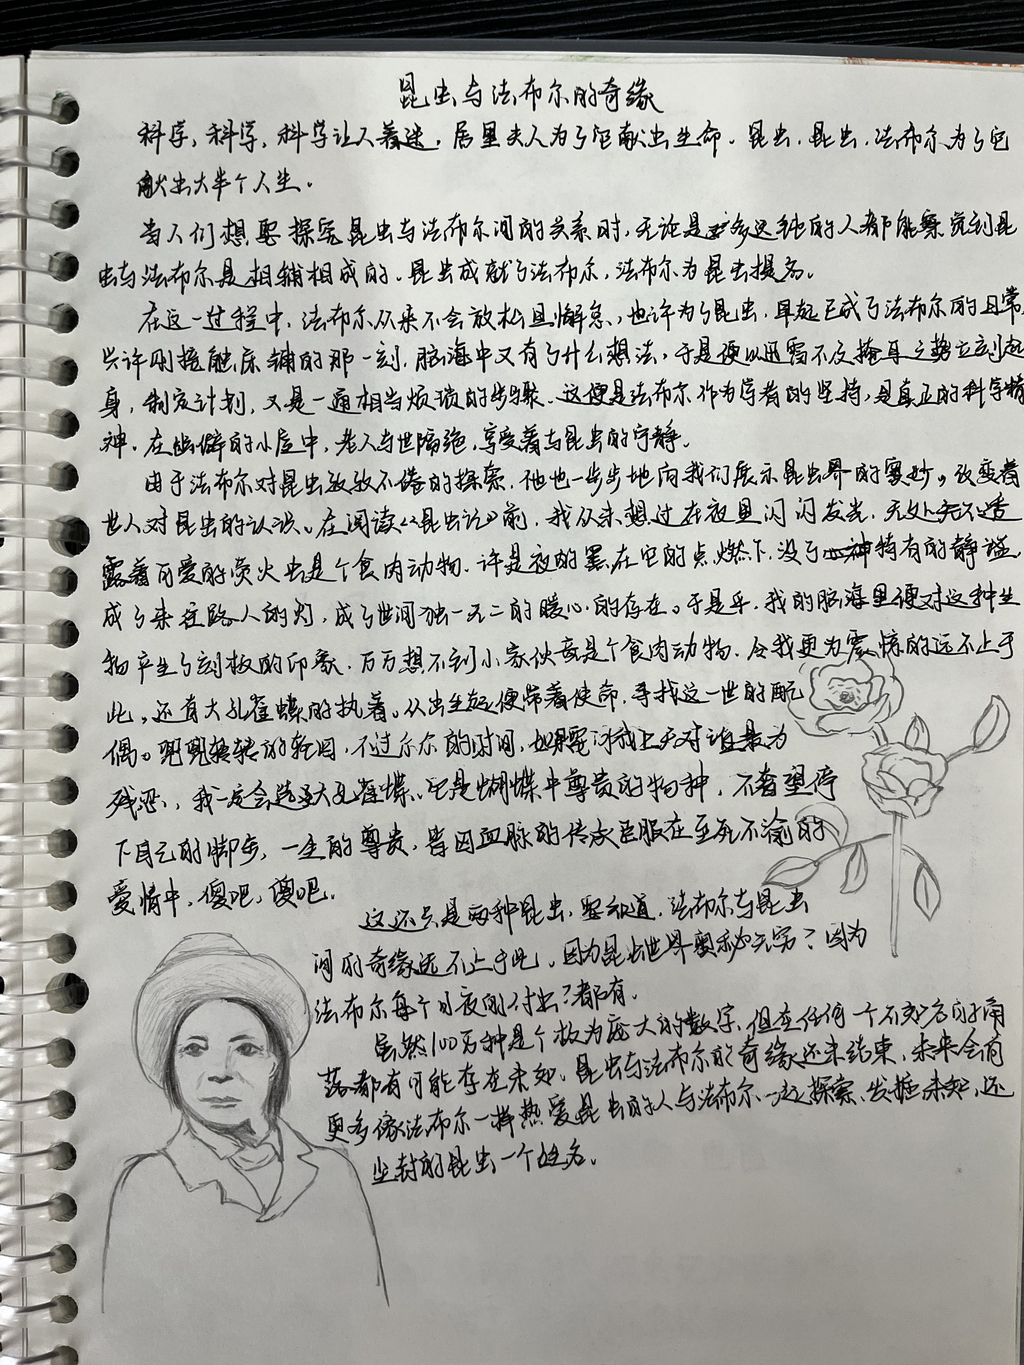 昆虫与法布尔的奇缘
科学，科学，科学让人着迷，居里夫人为了它献出生命。昆虫，昆虫，法布尔为了它
献出大半个人生。
当人们想要探究昆虫与法布尔间的关系时，无论是多迟钝的人都能察觉到昆
虫与法布尔是相辅相成的。昆虫成就了法布尔，法布尔为昆虫提名。
在这一过程中，法布尔从来不会放松且懈怠，也许为了昆虫，早起已成了法布尔的日常，
兴许刚接触床铺的那一刻，脑海中又有了什么想法，于是便以迅雷不及掩耳之势立刻起
身，制定计划，又是一通相当烦琐的步骤。这便是法布尔作为学者的坚持，是真正的科学精
神。在幽僻的小屋中，老人与世隔绝，享受着与昆虫的宁静。
由于法布尔对昆虫孜孜不倦的探索，他也一步步地向我们展示昆虫界的奥妙，改变着
世人对昆虫的认识。在阅读《昆虫记》前，我从未想过在夜里闪闪发光，无处不透
露着可爱的萤火虫是个食肉动物。许是夜的黑在它的点燃下，没了特有的静谧，
成了来往路人的灯，成了世间独一无二的暖心的存在。于是乎，我的脑海里便对这种生
物产生了刻板的印象，万万想不到小家伙竟是个食肉动物。令我更为震惊的远不止于
此，还有大孔雀蝶的执着。从出生起便带着使命，寻找这一世的配
偶。兜兜转转的轮回，不过尔尔的时间，如果要问我上天对谁最为
残忍，我一定会选择大孔雀蝶。它是蝴蝶中尊贵的物种，不奢望停
下自己的脚步，一生的尊贵，皆因血脉的传承臣服在至死不渝的
爱情中，傻吧，傻吧。
这还只是两种昆虫，要知道，法布尔与昆虫
间的奇缘远不止于此。因为昆虫世界奥秘无穷？因为
法布尔每个日夜的付出？都有。
虽然100万种是个极为庞大的数字，但在任何一个不知名的角
落都有可能存在未知。昆虫与法布尔的奇缘还未结束，未来会有
更多像法布尔一样热爱昆虫的人与法布尔一起探索、发掘未知，还
尘封的昆虫一个姓名。